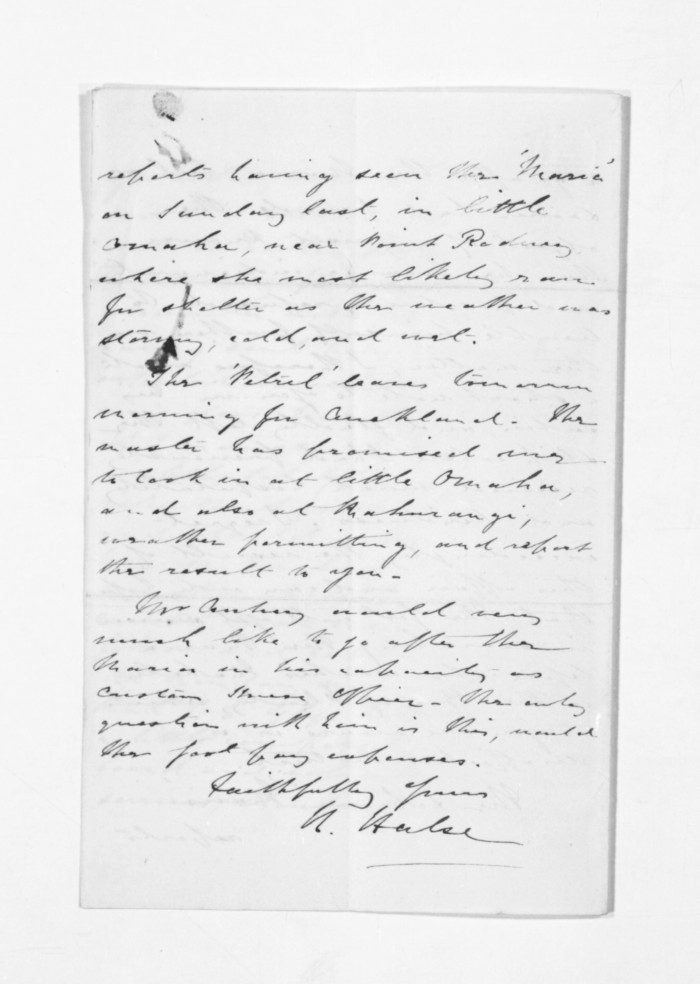 reports having seen the 'Maria'
on Sunday last, in little
Omaha, near Point Rodney
where she most likely ran
for shelter as the weather was
stormy, cold, and wet.
The 'Petrel' leaves tomorrow
morning for Auckland. The
master has promised me
to look in at little Omaha,
and also at Mahurangi,
weather permitting, and report
the result to you.
Mr would very
much like to go after the
Maria in his capacity as
Custom House Officer. The only
question with him is this, would
the Govt pay expenses.
Faithfully yours
H. Halse